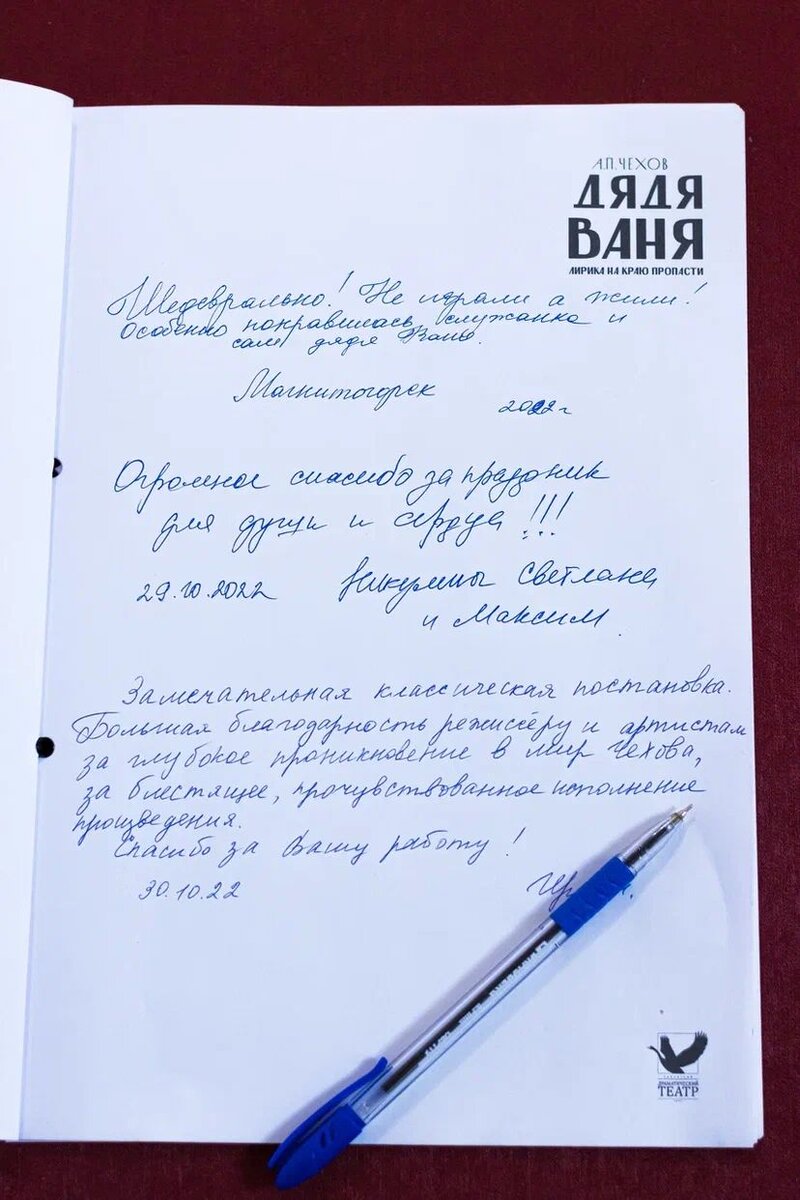 А.П.ЧЕХОВ
ДЯДЯ
ВАНЯ
ЛИРИКА НА КРАЮ ПРОПАСТИ
Шедеврально! Не играли а жили!
Особенно понравилась служанка и
сам дядя Ваня.
Магнитогорск
2022г
Огромное спасибо за праздник
для души и сердца!!!
29.10.2022 Никулины Светлана
и Максим.
Замечательная классическая постановка.
Большая благодарность режиссёру и артистам
за глубокое проникновение в мир Чехова,
за блестящее, прочувствованное исполнение
произведения.
Спасибо за Вашу работу!
30.10.22
ДРАМАТИЧЕСКИЙ
ТЕАТР